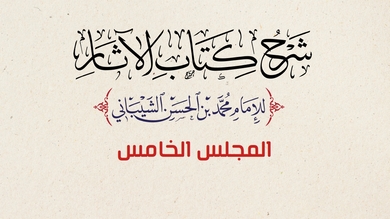 شَرْحُ كِتَابِ الآثَارِ
للإِمَامِ مُحَمَّدِ بْنِ الْحَسَنِ الشَّيْبَانِي
المجلس الخامس